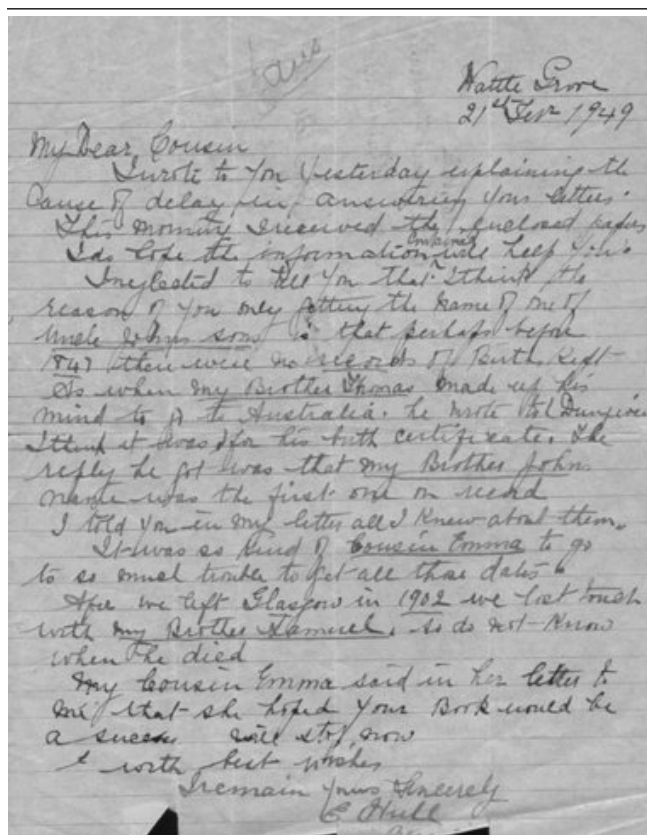 Ans
Wattle Grove
21st Febr 1949
My Dear Cousin
I wrote to you yesterday explaining the
Cause of delay in answering your letters.
This morning I received the enclosed papers
I do hope the information contained will help you.
I neglected to tell you that I think the
reason of you only getting the name of one of
Uncle sons is that perhaps before
1847 there were no records of Births Kept
As when my Brother Thomas made up his
mind to go to Australia. he wrote to Dungiven
I think it was for his birth certificate. The
reply he got was that my Brother John
name was the first one on record
I told you in my letter all I Know about them.
It was so kind of Cousin Emma to go
to so much trouble to get all those dates
After we left Glasgow in 1902 we lost touch
with my Brother Samuel, so do not Know
when he died
My Cousin Emma said in her letter to
me that she hoped your Book would be
a success will stop now
& with best wishes
I remain yours Sincerely
E Hull